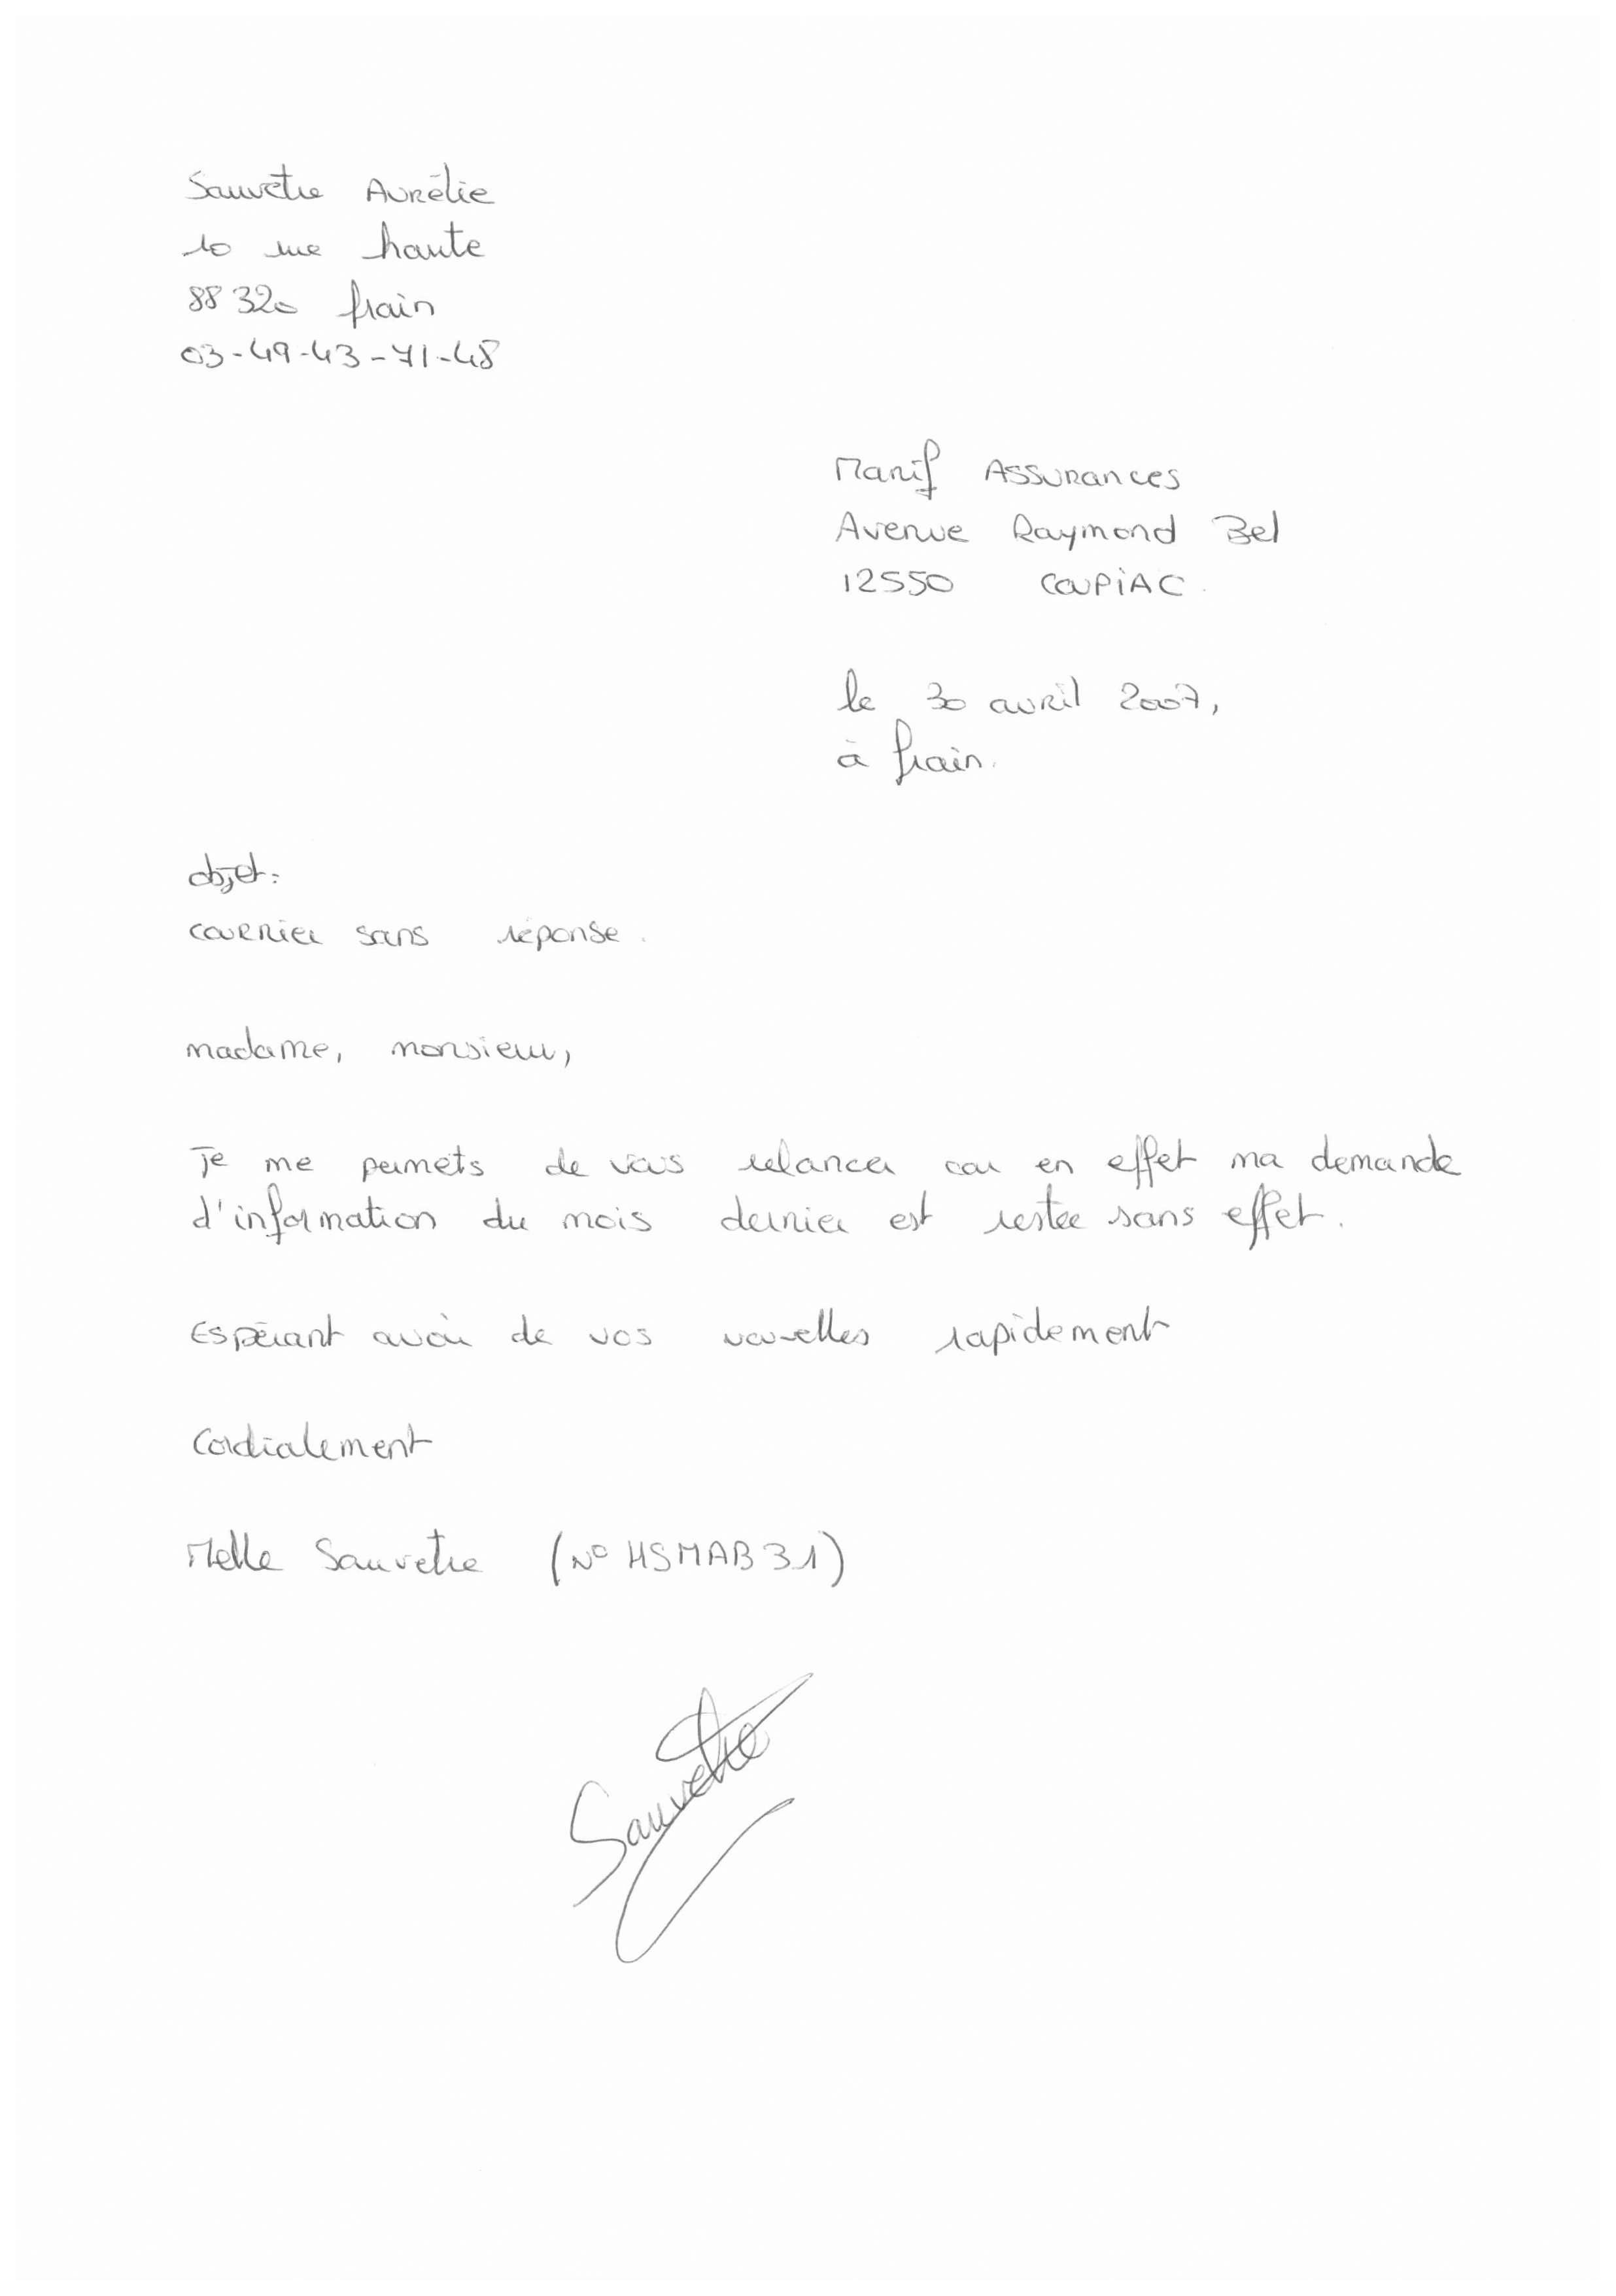 Sauvetre Aurélie
10 rue haute
88320 frain
03-49-43-71-48
Manif Assurances
Avenue Raymond Bel
12550 COUPIAC.
le 30 avril 2007,
à frain.
objet:
courrier sans réponse.
madame, monsieur,
Je me permets de vous relancer car en effet ma demande
d'information du mois dernier est restée sans effet.
Espérant avoir de vos nouvelles rapidement
Cordialement
Melle Sauvetre (N° HSMAB31)
Sauvetre